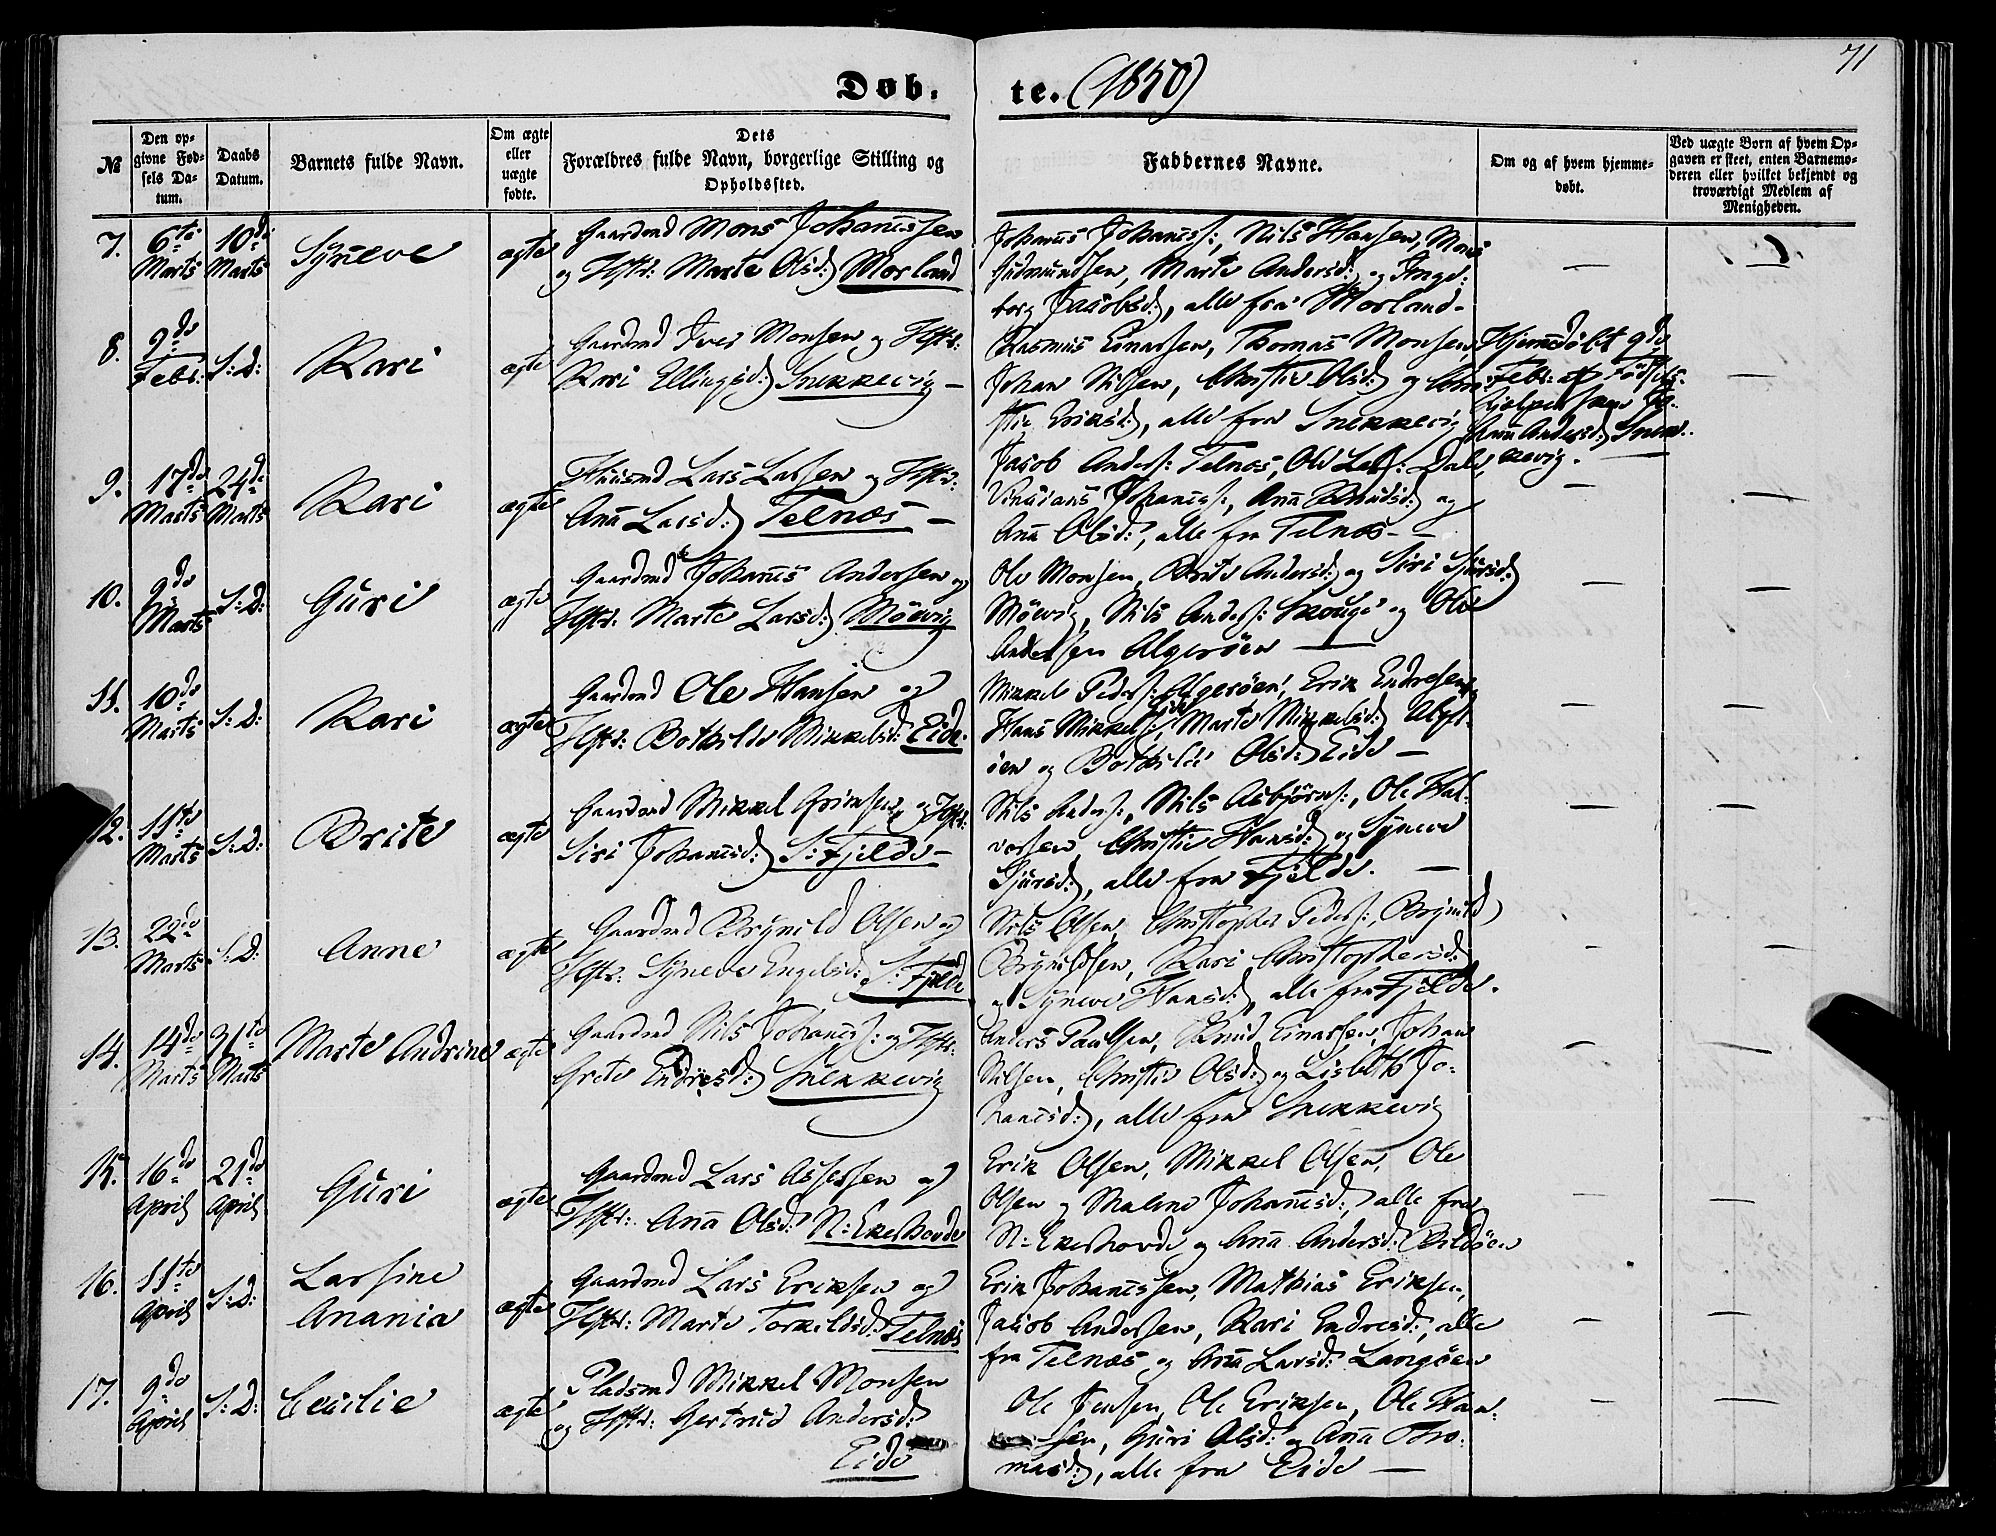 71
Døb. te. (1850)
№
Den opgivne Fødsels Datum.
Daabs Datum.
Barnets fulde Navn.
Om ægte eller uægte fødte.
Dets Forældres fulde Navn, borgerlige Stilling og Opholdssted.
Faddernes Navne.
Om og af hvem hjemmedøbt.
Ved uægte Børn af hvem Opgaven er skeet, enten Barnemoderen eller hvilket bekjendt og troværdigt Medlem af Menigheden.
7. 6te Marts 10de Marts Syneve ægte
Gaardmd Mons Johannessen
og Hstr: Marte Olsd: Morland
Johannes Johanness:, Nils Hansen, Mons
Gudmundsen, Marte Andersd: og Inge-
borg Jacobsd:, alle fra Morland -
8. 9de Febr: S: D: Kari ægte
Gaardmd Iver Monsen og Hstr:
Kari Ellingsd: Snekkevig -
Rasmus Einarsen, Thomas Monsen,
Johan Nilsen, Christie Olsd: og Chri-
stie Eriksd:, alle fra Snekkevig
Hjemmedøbt 9de
Febr: af Fødsels-
hjelpersken
Andersd: Snek-
kevig.
9. 17de Marts 24de Marts Kari ægte
Huusmd Lars Larsen og Hstr:
Anna Larsd: Telnæs -
Jacob Anders: Telnæs, Ole Lars: Dale,
Johaness:, Anna Knudsd: og
Anna Olsd:, alle fra Telnæs -
10. 9de Marts S: D: Guri ægte
Gaardmd Johannes Andersen og
Hstr: Marte Larsd: Møevig
Ole Monsen, Brite Andersd: og Siri Sjursd:
Møevig, Nils Anders: Skouge og Ole
Andersen Algerøen
11. 10de Marts S: D: Kari ægte
Gaardmd Ole Hansen og
Hstr: Bothilde Mikkelsd: Eide.
Mikkel Peders: Algerøen, Erik Endresen,
Hans Mikkels: Eide, Marte Mikkelsd:
øen og Bothilde Olsd: Eide -
12. 11te Marts S: D: Brite ægte
Gaardmd Mikkel Grimsen og Hstr:
Siri Johannesd: S: Fjelde -
Nils Anders:, Nils Asbjørns:, Ole Hal-
vorsen, Christie Hansd: og Syneve
Sjursd:, alle fra Fjelde. -
13. 22de Marts S: D: Anne ægte
Gaardmd Brynild Olsen og
Hstr: Syneve Engelsd: S: Fjelde
Nils Olsen, Christopher Peders:, Brynild
Brynildsen, Kari Christophersd:
og Syneve Hansd:, alle fra Fjelde.
14. 14de Marts 31te Marts Marte Andrine ægte
Gaardmd Nils Johaness: og Hstr:
Grete Endresd: Snekkevig
Anders Paulsen, Knud Einarsen, Johan
Nilsen, Christie Olsd: og Lisbeth Jo-
hannesd:, alle fra Snekkevig
15. 16de April 21de April Guri ægte
Gaardmd Lars Assersen og
Hstr: Anna Olsd: N: Ekerhovde
Erik Olsen, Mikkel Olsen, Ole
Olsen og Malene Johannesd:, alle fra
N: Ekerhovde og Anna Andersd: Bildøen
16. 11te April S: D: Larsine Anania ægte
Gaardmd Lars Eriksen og
Hstr: Marte Torkildsd: Telnæs
Erik Johannessen, Mathias Eriksen,
Jacob Andersen, Kari Endresd:, alle
fra Telnæs og Anna Larsd: Langøen
17. 9de April S: D: Cecilie ægte
Pladsmd Mikkel Monsen
og Hstr: Gertrud Andersd:
Eide
Ole Jensen, Ole Eriksen, Ole Han-
sen, Guri Olsd: og Anna Tho-
masd:, alle fra Eide -